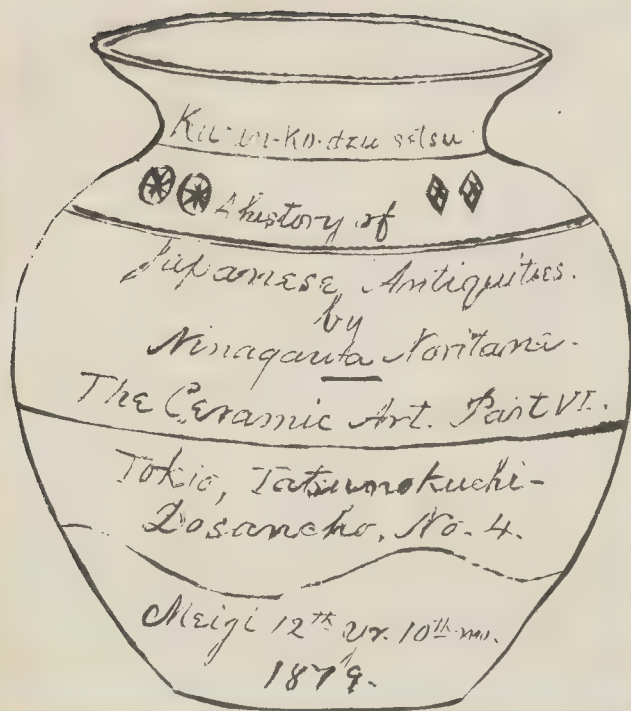 Ku-wn-Ko-dzu setsu.
A history of
Japanese Antiquities.
by
Ninagauta Noritane.
The Ceramic Art. Part VI.
Tokio, Tatsunokuchi-
Dosancho, No. 4.
Meigi 12th yr. 10th mo.
1879.